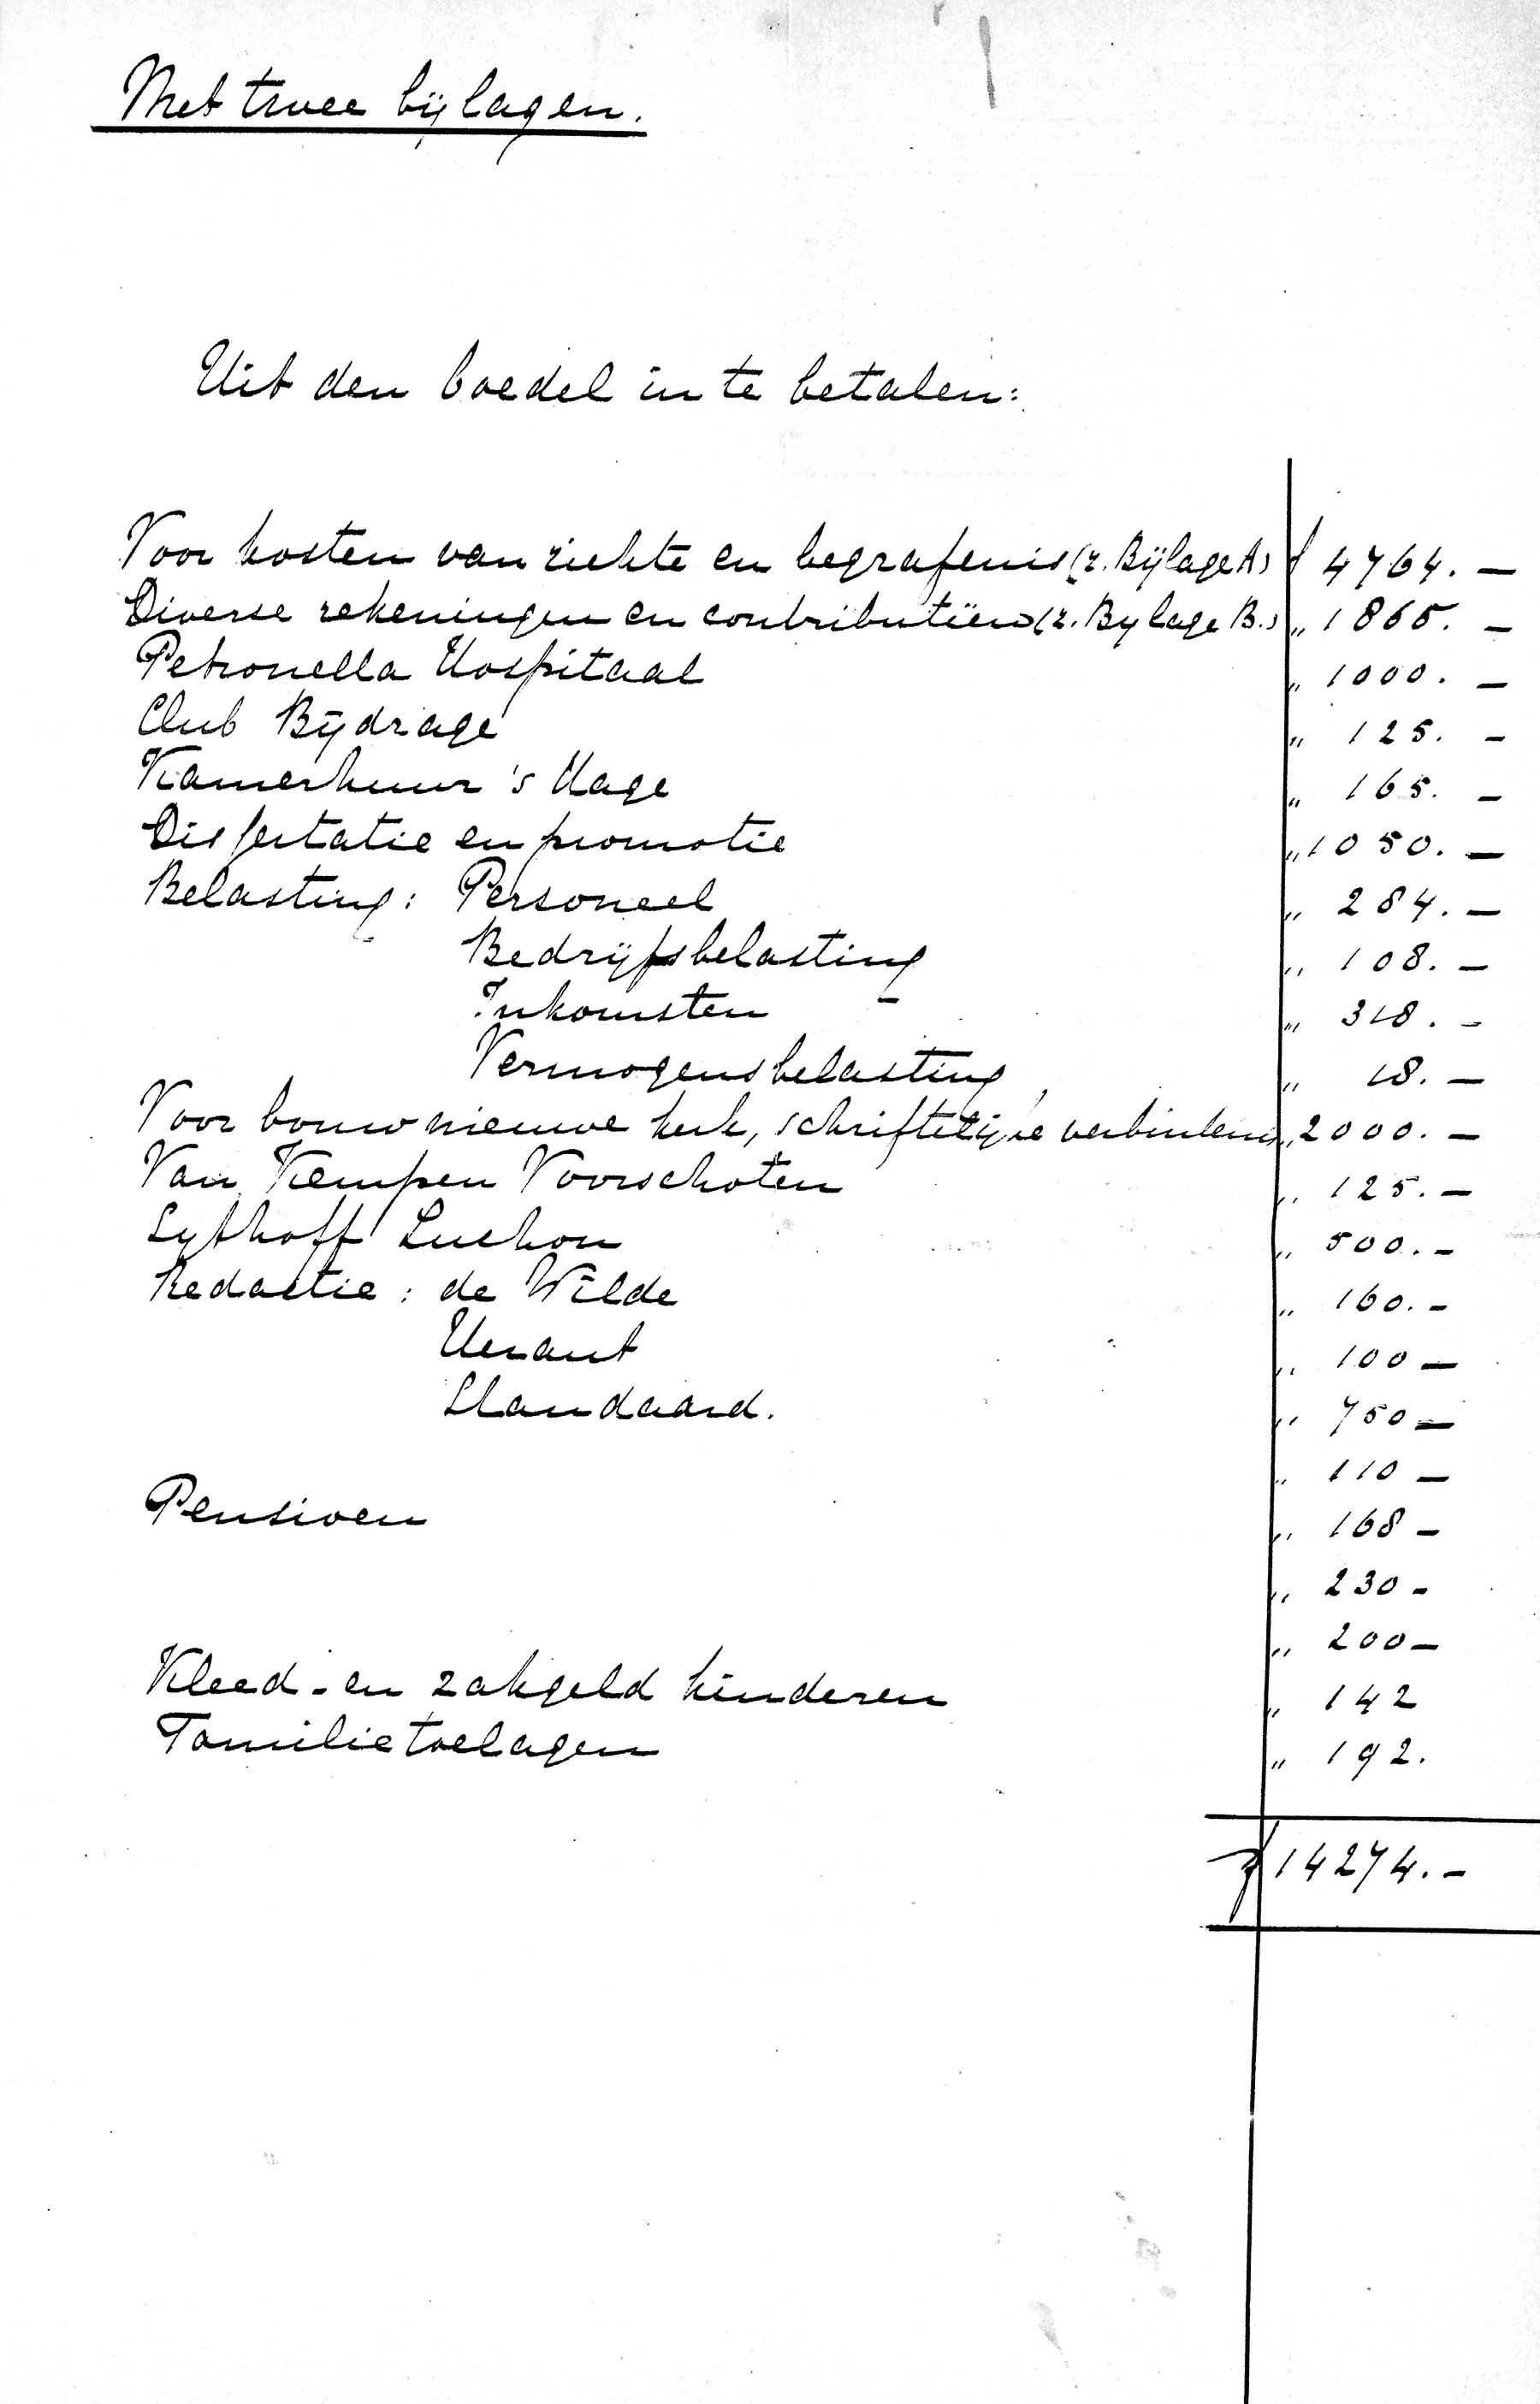 Met twee bijlagen.
Uit den boedel in te betalen:
Voor kosten van ziekte en begrafenis (z. Bijlage A) f 4764. —
Diverse rekeningen en contributiën (z. Bylage B.) „ 1865. —
Petronella Hospitaal „ 1000. —
Club Bijdrage „ 125. —
Kamerhuur 's Hage „ 165. —
Dissertatie en promotie „ 1050. —
Belasting: Personeel „ 284. —
Bedrijfsbelasting „ 108. —
Inkomsten – „ 318. —
Vermogensbelasting „ 18. —
Voor bouw nieuwe kerk, schriftelijke verbintenis „ 2000. —
Van Kempen Voorschoten „ 125. —
Sythoff Luehon „ 500. —
Redactie: de Wilde „ 160. —
Heraut „ 100 —
Standaard. „ 750 —
„ 110 —
Pensioen „ 168 —
„ 230 —
„ 200 —
Kleed- en zakgeld kinderen „ 142
Familietoelagen „ 192.
f 14274. —